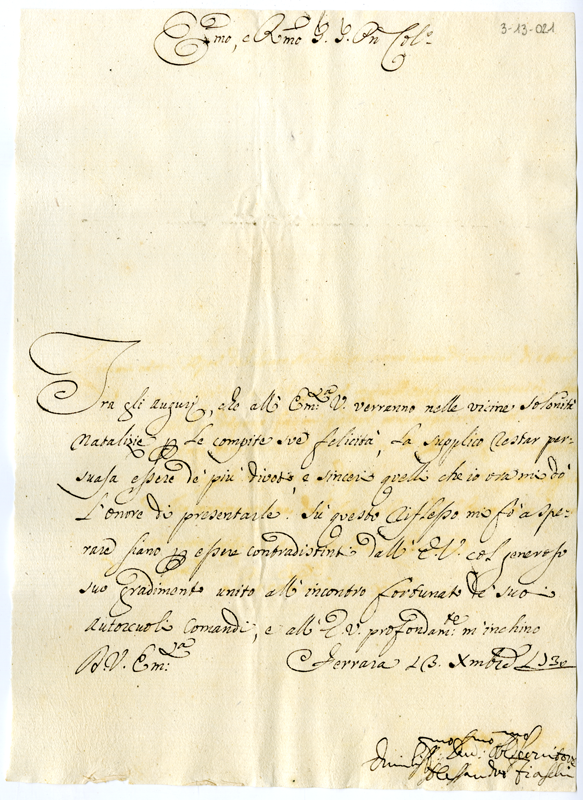 3-13-021
Em̃o, e Rm̃o S. S. Pñ Col.o
Tra gli Augurj, che all' Em.za V. verranno nelle vicine Solenità
Natalizie per le compite sue felicità, La supplico restar per-
suasa essere de' più divoti, e sinceri quelli che io ora mi dò
L'onore di presentarle. Sù questo Riflesso mi fò a spe-
rare siano per essere contradistinti dall' E.V. col generoso
suo gradimento unito all' incontro fortunato de' suoi
autorevoli Comandi, e all' E.V. profondam.te m'inchino
D. V. Em.za Ferrara 13. Xmbre
Alessandro Fiaschi